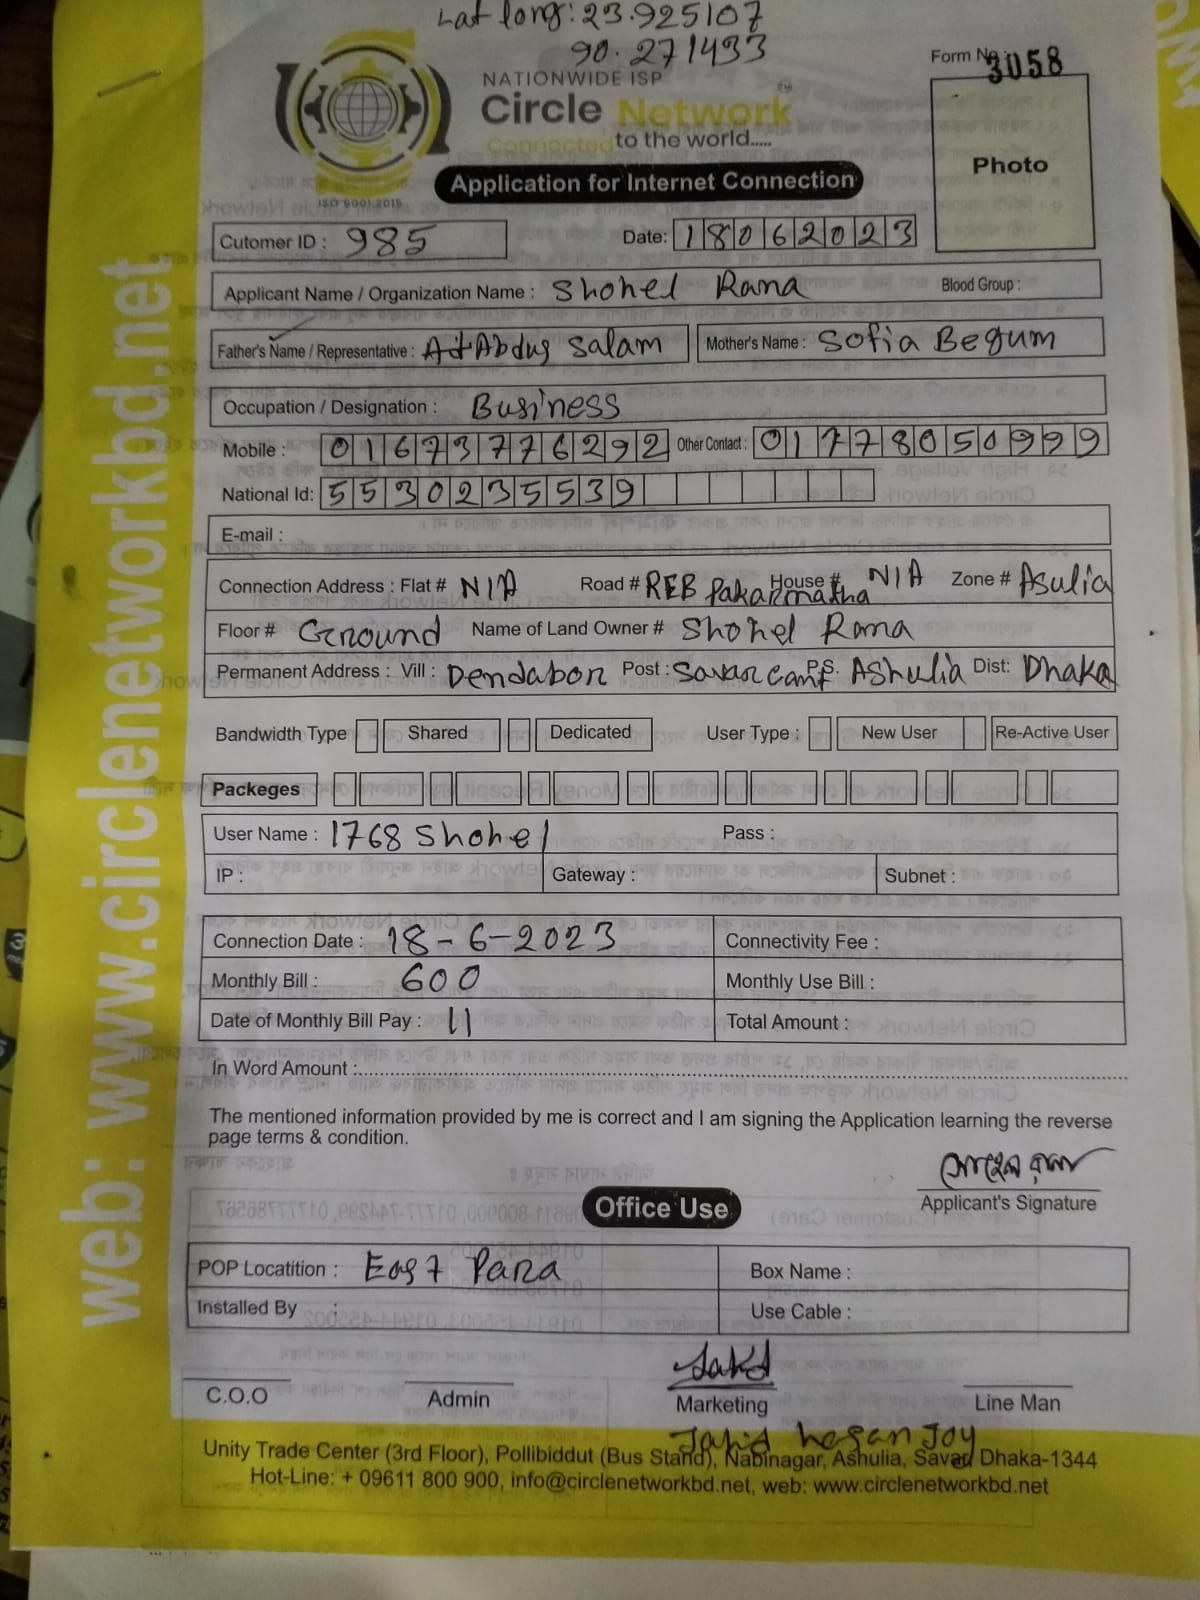 Lat long: 23.925107
90.271433
NATIONWIDE ISP
Circle Network
Connected to the world.....
Form No 3058
Photo
ISO 9001:2015
Application for Internet Connection
Cutomer ID : 985 Date: 18062023
Applicant Name / Organization Name : Shohel Rana Blood Group :
Father's Name / Representative : Abdus Salam Mother's Name : Sofia Begum
Occupation / Designation : Business
Mobile : 01673776292 Other Contact : 01778050999
National Id: 5530235539
E-mail :
Connection Address : Flat # N/A Road # REB Pakarmatha House # N/A Zone # Asulia
Floor # Ground Name of Land Owner # Shohel Rana
Permanent Address : Vill : Dendabor Post : Savar P.S. Ashulia Dist: Dhaka
Bandwidth Type Shared Dedicated User Type : New User Re-Active User
Packeges
User Name : 1768 Shohel Pass :
IP : Gateway : Subnet :
Connection Date : 18-6-2023 Connectivity Fee :
Monthly Bill : 600 Monthly Use Bill :
Date of Monthly Bill Pay : 11 Total Amount :
In Word Amount :
The mentioned information provided by me is correct and I am signing the Application learning the reverse
page terms & condition.
সোহেল রানা
Applicant's Signature
Office Use
POP Locatition : East Para Box Name :
Installed By : Use Cable :
C.O.O Admin Marketing Line Man
hasan Joy
Unity Trade Center (3rd Floor), Pollibiddut (Bus Stand), Nabinagar, Ashulia, Savar, Dhaka-1344
Hot-Line: + 09611 800 900, info@circlenetworkbd.net, web: www.circlenetworkbd.net
web: www.circlenetworkbd.net